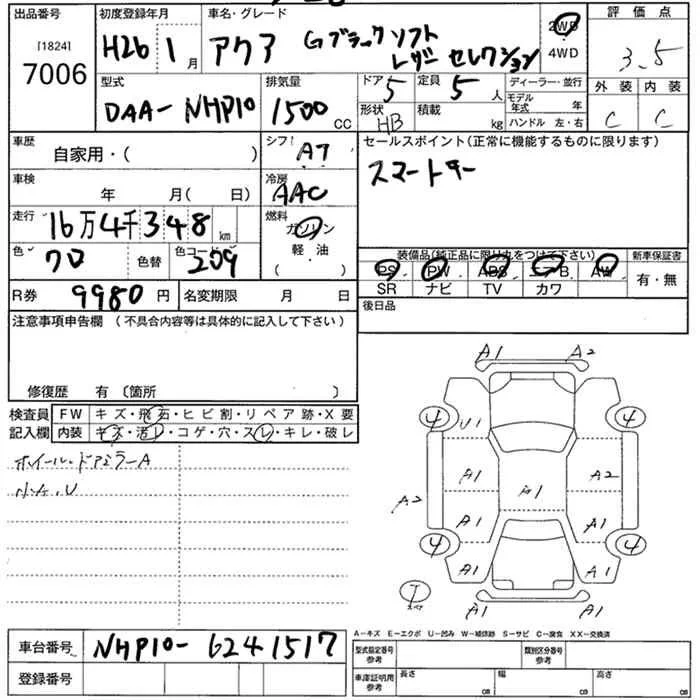 出品番号 初度登録年月 車名・グレード 評価点
[1824]
7006 H26 1月 アクア Gブラックソフトレザーセレクション 2WD 4WD 3.5
型式 排気量 ドア 定員 ディーラー・並行 外装 内装
DAA-NHP10 1500 CC 5 5人 モデル年式 年 C C
形状 HB 積載 kg ハンドル 左・右
車歴 シフト セールスポイント(正常に機能するものに限ります)
自家用・( ) AT スマートキー
車検 冷房
年 月( 日) AAC
走行 燃料
16万4千348km ガソリン
軽・油
( )
色 色替 色コード 装備品(純正品に限り丸をつけて下さい) 新車保証書
クロ 209 PS PW ABS エアB AW 有・無
SR ナビ TV カワ
R券 9980円 名変期限 月 日 後日品
注意事項申告欄 (不具合内容等は具体的に記入して下さい)
修復歴 有 〔箇所 〕
検査員 FW キズ・飛石・ヒビ割・リペア跡・X要
記入欄 内装 キズ・汚レ・コゲ・穴・スレ・キレ・破レ
ホイール・ドアミラーA
小キ、U
A1 A2
4 4
U1
A1 A2
A1
A2
A1 A1
4 4
A1 A1
A1
A-キズ E-エクボ U-凹み W-補修跡 S-サビ C-腐食 XX-交換済
車台番号 NHP10-6241517 型式指定番号 参考 類別区分番号 参考
登録番号 車庫証明用 参考 長さ cm 幅 cm 高さ cm